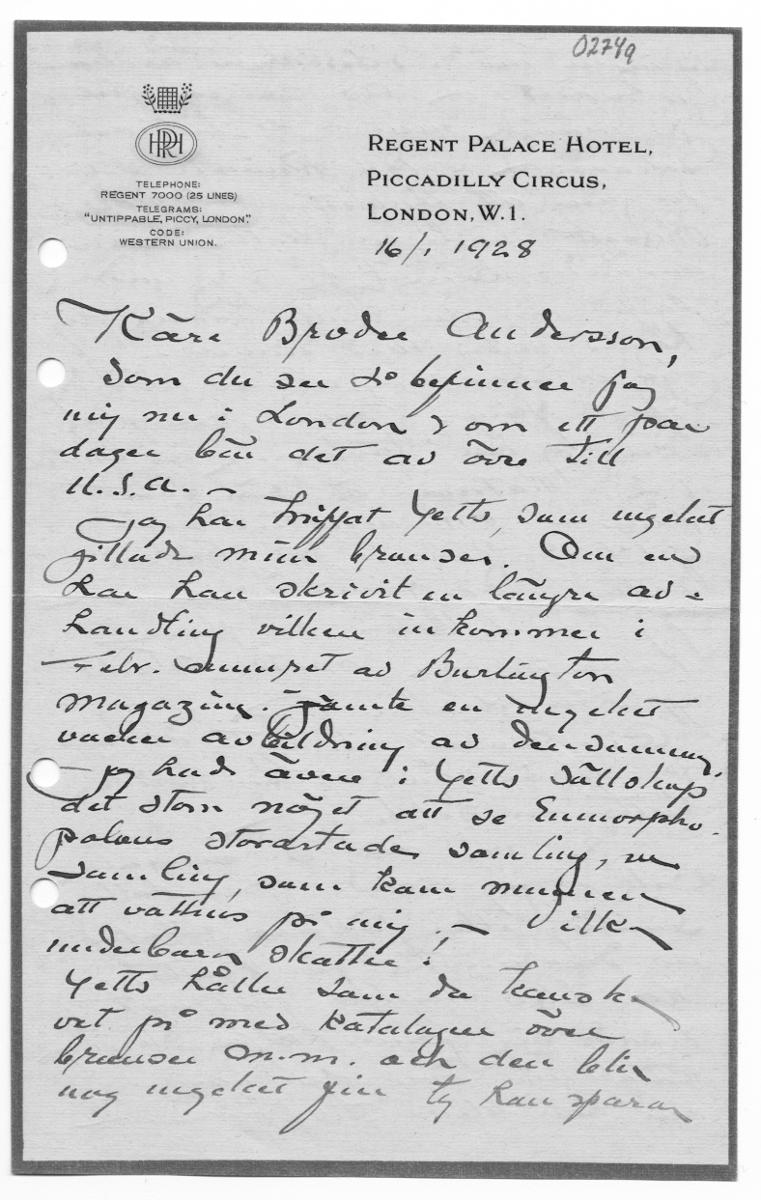 02749
HRPH
TELEPHONE:
REGENT 7000 (25 LINES)
TELEGRAMS:
"UNTIPPABLE, PICCY, LONDON."
CODE:
WESTERN UNION.
REGENT PALACE HOTEL,
PICCADILLY CIRCUS,
LONDON, W.1.
16/1 1928
Käre Broder Andersson,
Som du ser så befinner jag
mig nu i London & om ett par
dagar bär det av över till
U.S.A. —
Jag har träffat Yetts, som mycket
gillade mina bronser. Om en
har han skrivit en längre av-
handling vilken inkommer i
Febr. numret av Burlington
magazine. Jämte en mycket
vacker avbildning av densamma.
— Jag hade även i Yetts sällskap
det stora nöjet att se Eumorpho-
polous storartade samling, en
samling, som kom munnen
att vattnas på mig. — Vilka
underbara skatter!
Yetts håller som du kanske
vet på med katalogen över
bronser m.m. och den blir
nog mycket fin ty han sparar